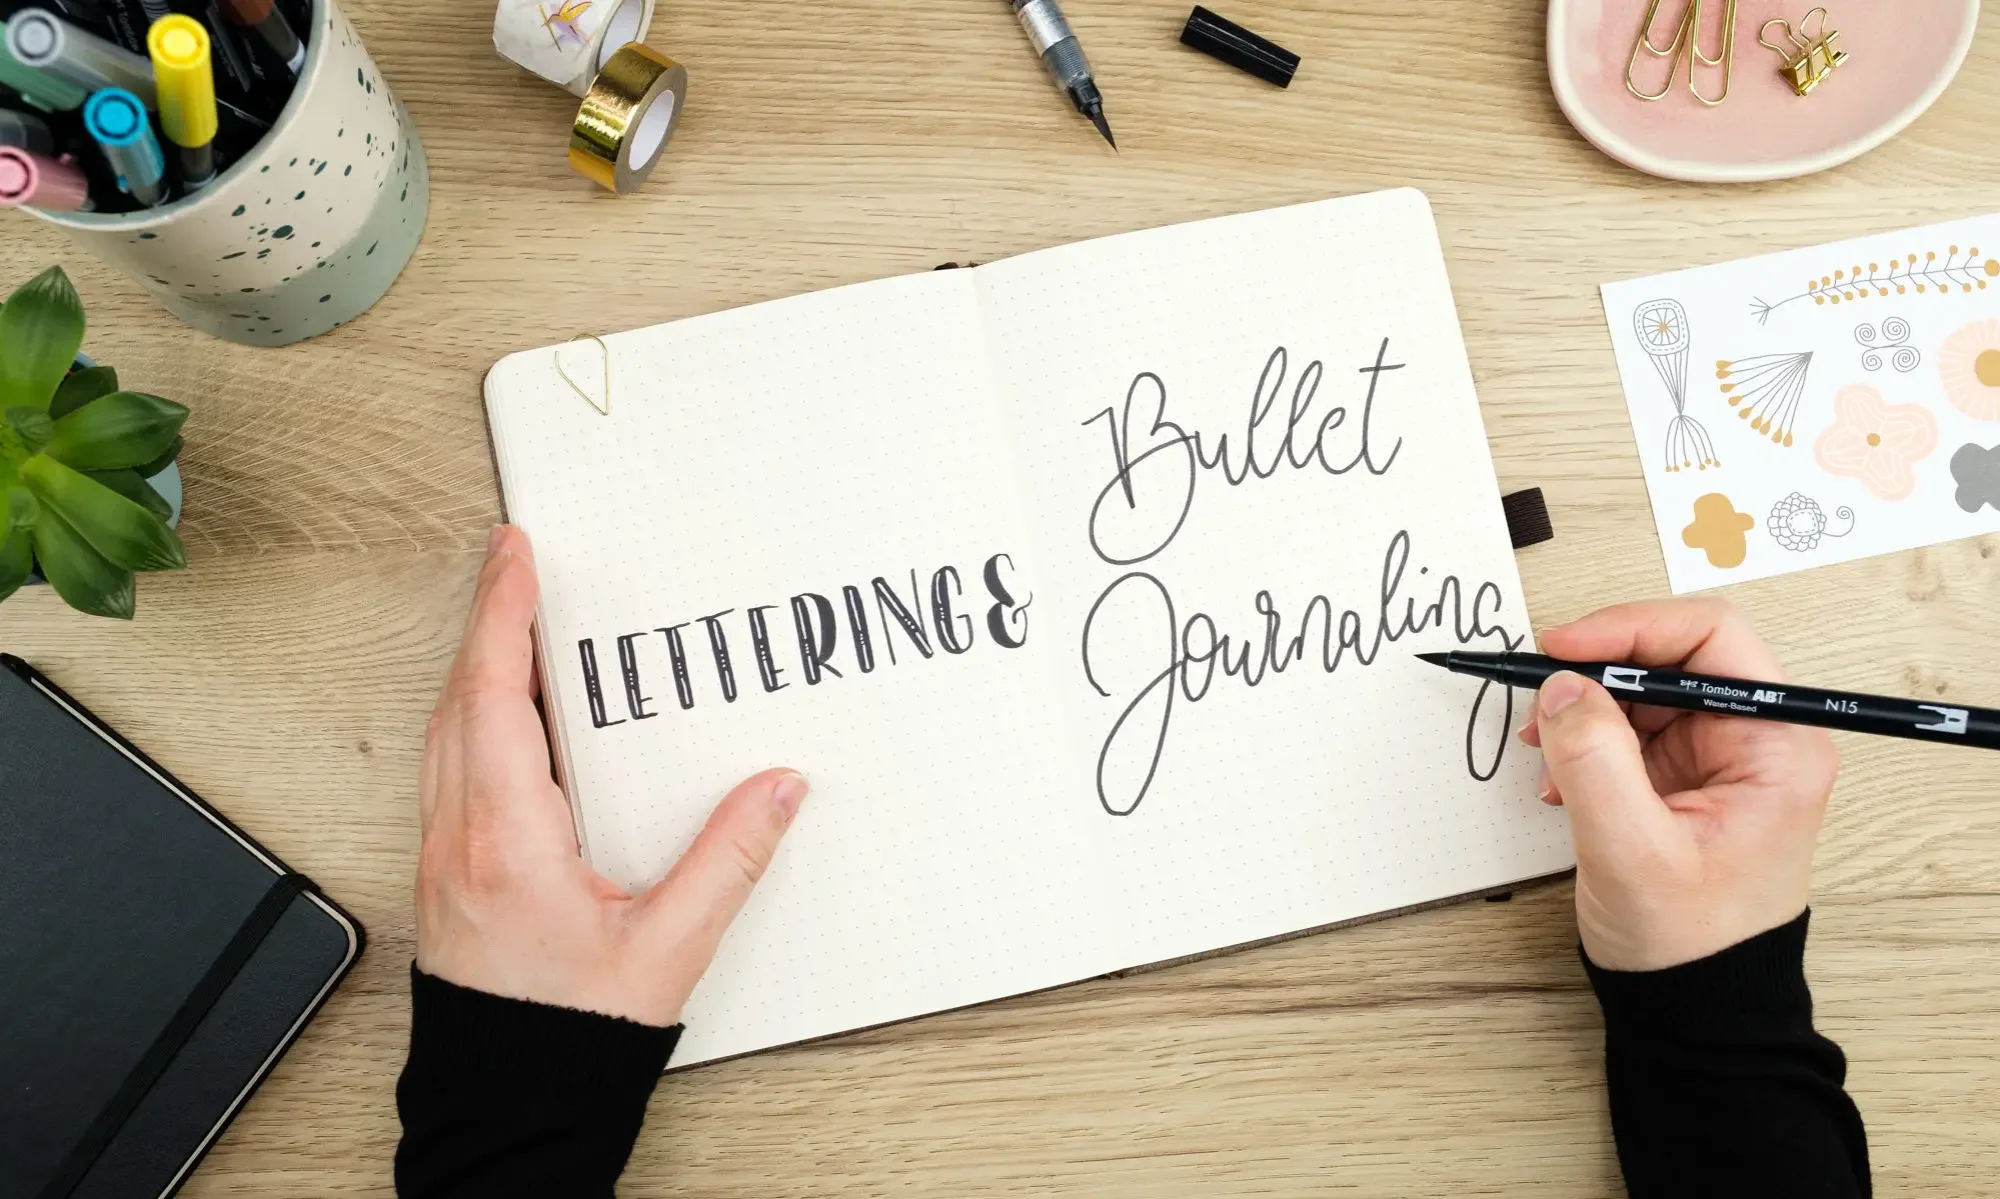 LETTERING &
Bullet
Journaling
Tombow ABT
Water-Based
N15